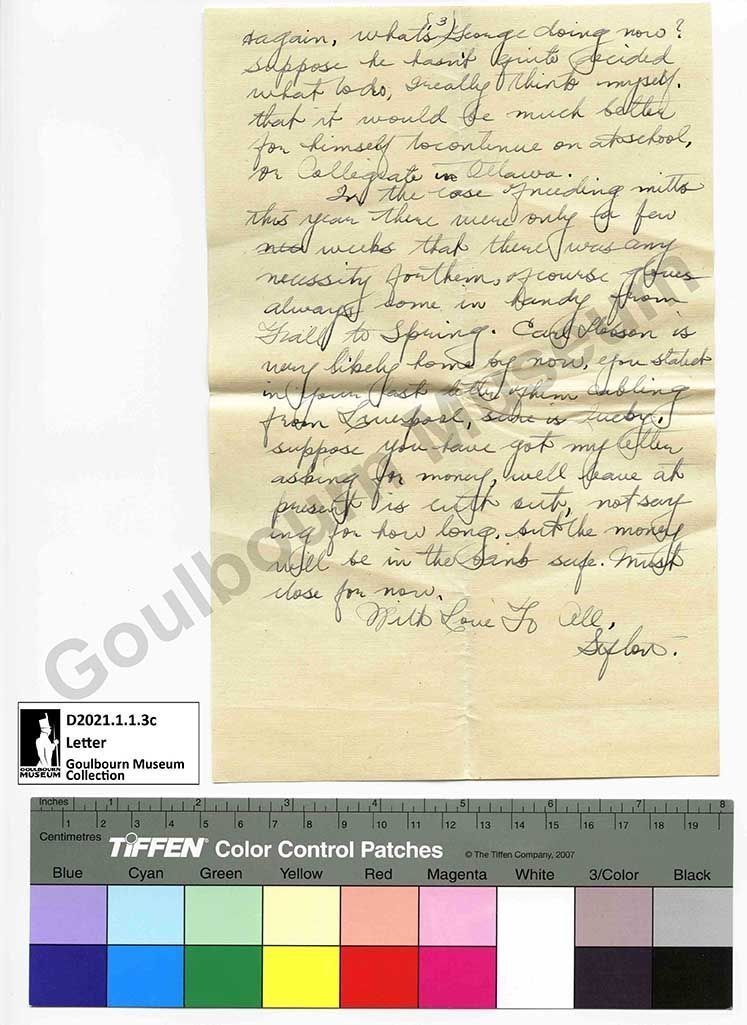 (3)
again, what's George doing now?
Suppose he hasn't quite decided
what to do, I really think myself.
that it would be much better
for himself to continue on at school,
or Collegiate in Ottawa.
In the case of needing mitts
this year there were only a few
weeks that there was any
necessity for them, of course gloves
always come in handy from
Fall to Spring. Earl is
very likely home by now, you stated
in your last letter of him cabling
from Liverpool, sure is lucky.
suppose you have got my letter
asking for money, well leave at
present is cutt out, not say
ing for how long. but the money
will be in the bank safe. Must
close for now.
With Love To All,
Goulbourn Museum
D2021.1.1.3c
Letter
Goulbourn Museum
Collection
GOULBOURN
MUSEUM
Inches 1 2 3 4 5 6 7 8
Centimetres 1 2 3 4 5 6 7 8 9 10 11 12 13 14 15 16 17 18 19
TIFFEN® Color Control Patches © The Tiffen Company, 2007
Blue Cyan Green Yellow Red Magenta White 3/Color Black